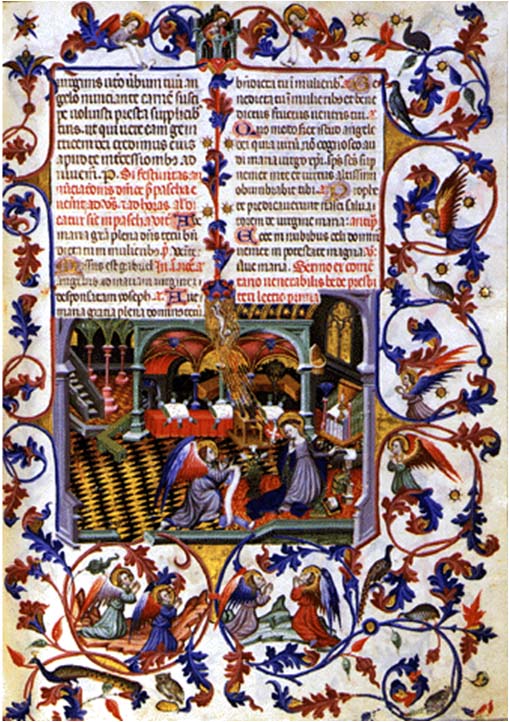 uirginis uerbum tuū an
gelo nunciante carnē susci
pe uoluisti presta supplicib
tuis. ut qui uere eam geni
tricem dei credimus eius
apud te intercessionib; ad
iuuem. P. Si festiuitas an
nūciacionis dnīce p pascha e
uenerit ad horas Al di
catur sic in pascha Aue
maria grā plena dn̄s tecū bn̄
dicta tu in mulierib;
Missus est gabriel
angelus ad mariam uirginē
desponsatam ioseph. a. Aue
maria gratia plena dominus tecū
bn̄dicta tu ī mulierib; a. Be
nedicta tu ī mulieribus et bene
dictus fructus uentris tui. a.
Quo modo fiet istud angele
dei quia uirū nō cognosco au
di maria uirgo xp̄i. sp̄s sc̄s sup
ueniet in te et uirtus altissimi
obumbrabit tibi. a. Prophe
te predicauerunt nasci salua
torem de uirgine maria. antip.
Ecce in nubibus celi domin
ueniet in potestate magna. v.
Aue maria. Sermo ex comē
tario uenerabilis bede presbi
teri lectio prima